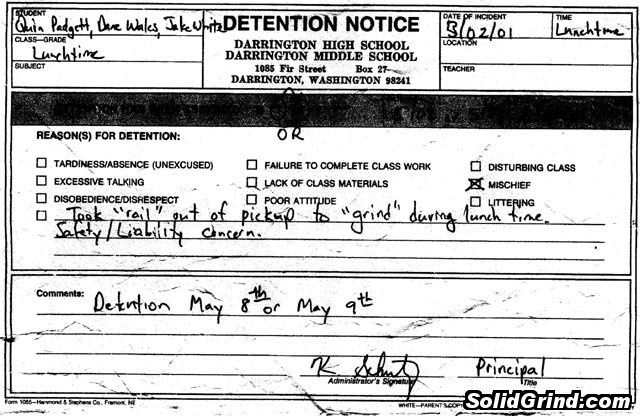 STUDENT
Quin Padgett, Dave Wales, Jake White
CLASS—GRADE
Lunchtime
SUBJECT
DETENTION NOTICE
DARRINGTON HIGH SCHOOL
DARRINGTON MIDDLE SCHOOL
1085 Fir Street Box 27
DARRINGTON, WASHINGTON 98241
DATE OF INCIDENT
5/02/01
TIME
Lunchtime
LOCATION
TEACHER
OR
REASON(S) FOR DETENTION:
TARDINESS/ABSENCE (UNEXCUSED)
EXCESSIVE TALKING
DISOBEDIENCE/DISRESPECT
FAILURE TO COMPLETE CLASS WORK
LACK OF CLASS MATERIALS
POOR ATTITUDE
DISTURBING CLASS
MISCHIEF
LITTERING
Took "rail" out of pickup to "grind" during lunch time.
Safety/Liability concern.
Comments:
Detention May 8th or May 9th
K Principal
Administrator's Signature Title
Form 1085—Hammond & Stephens Co., Fremont, NE
WHITE—PARENT'S COPY
SolidGrind.com